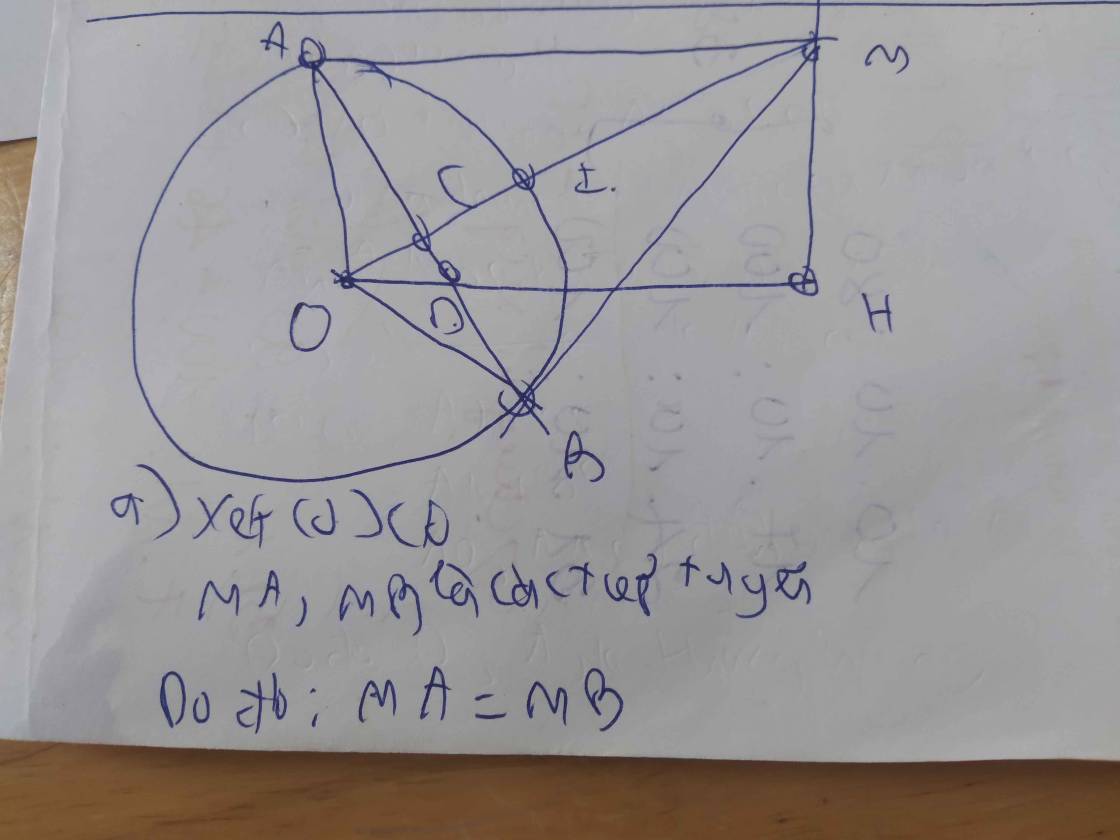 A
M
C
I.
O
D.
H
B
a) Xét (O) có
MA, MB là các tiếp tuyến
Do đó: MA = MB